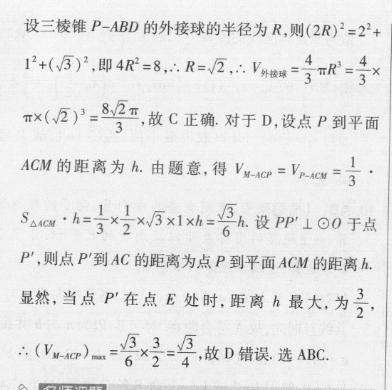 设三棱锥 P-ABD 的外接球的半径为 R,则(2R)²=2²+
1²+(√3)²,即 4R²=8,∴R=√2,∴V外接球=4/3 πR³=4/3×
π×(√2)³=8√2π/3,故 C 正确. 对于 D,设点 P 到平面
ACM 的距离为 h. 由题意,得 V_{M-ACP}=V_{P-ACM}=1/3·
S_{△ACM}·h=1/3×1/2×√3×1×h=√3/6 h. 设 PP′⊥⊙O 于点
P′,则点 P′到 AC 的距离为点 P 到平面 ACM 的距离 h.
显然,当点 P′在点 E 处时,距离 h 最大,为 3/2,
∴(V_{M-ACP})_{max}=√3/6×3/2=√3/4,故 D 错误. 选 ABC.